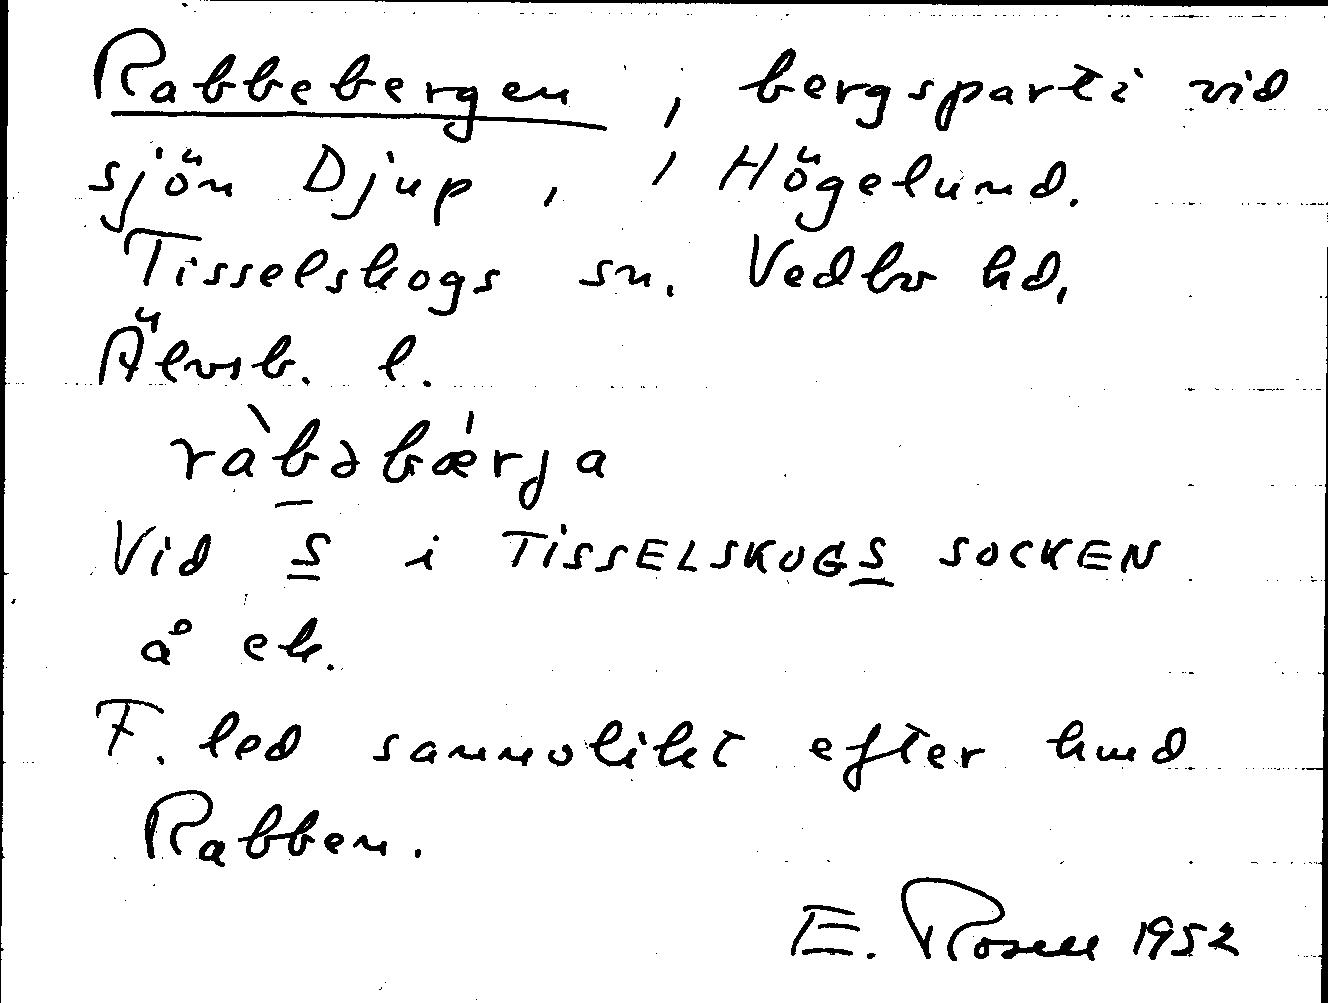 Rabbebergen, bergsparti vid
sjön Djup, / Högelund.
Tisselskogs sn. Vedbo hd,
Älvsb. l.
ràbəbǽrja
Vid S i TISSELSKOGS SOCKEN
å ek.
F. led sannolikt efter hund
Rabben.
E. Rosell 1952